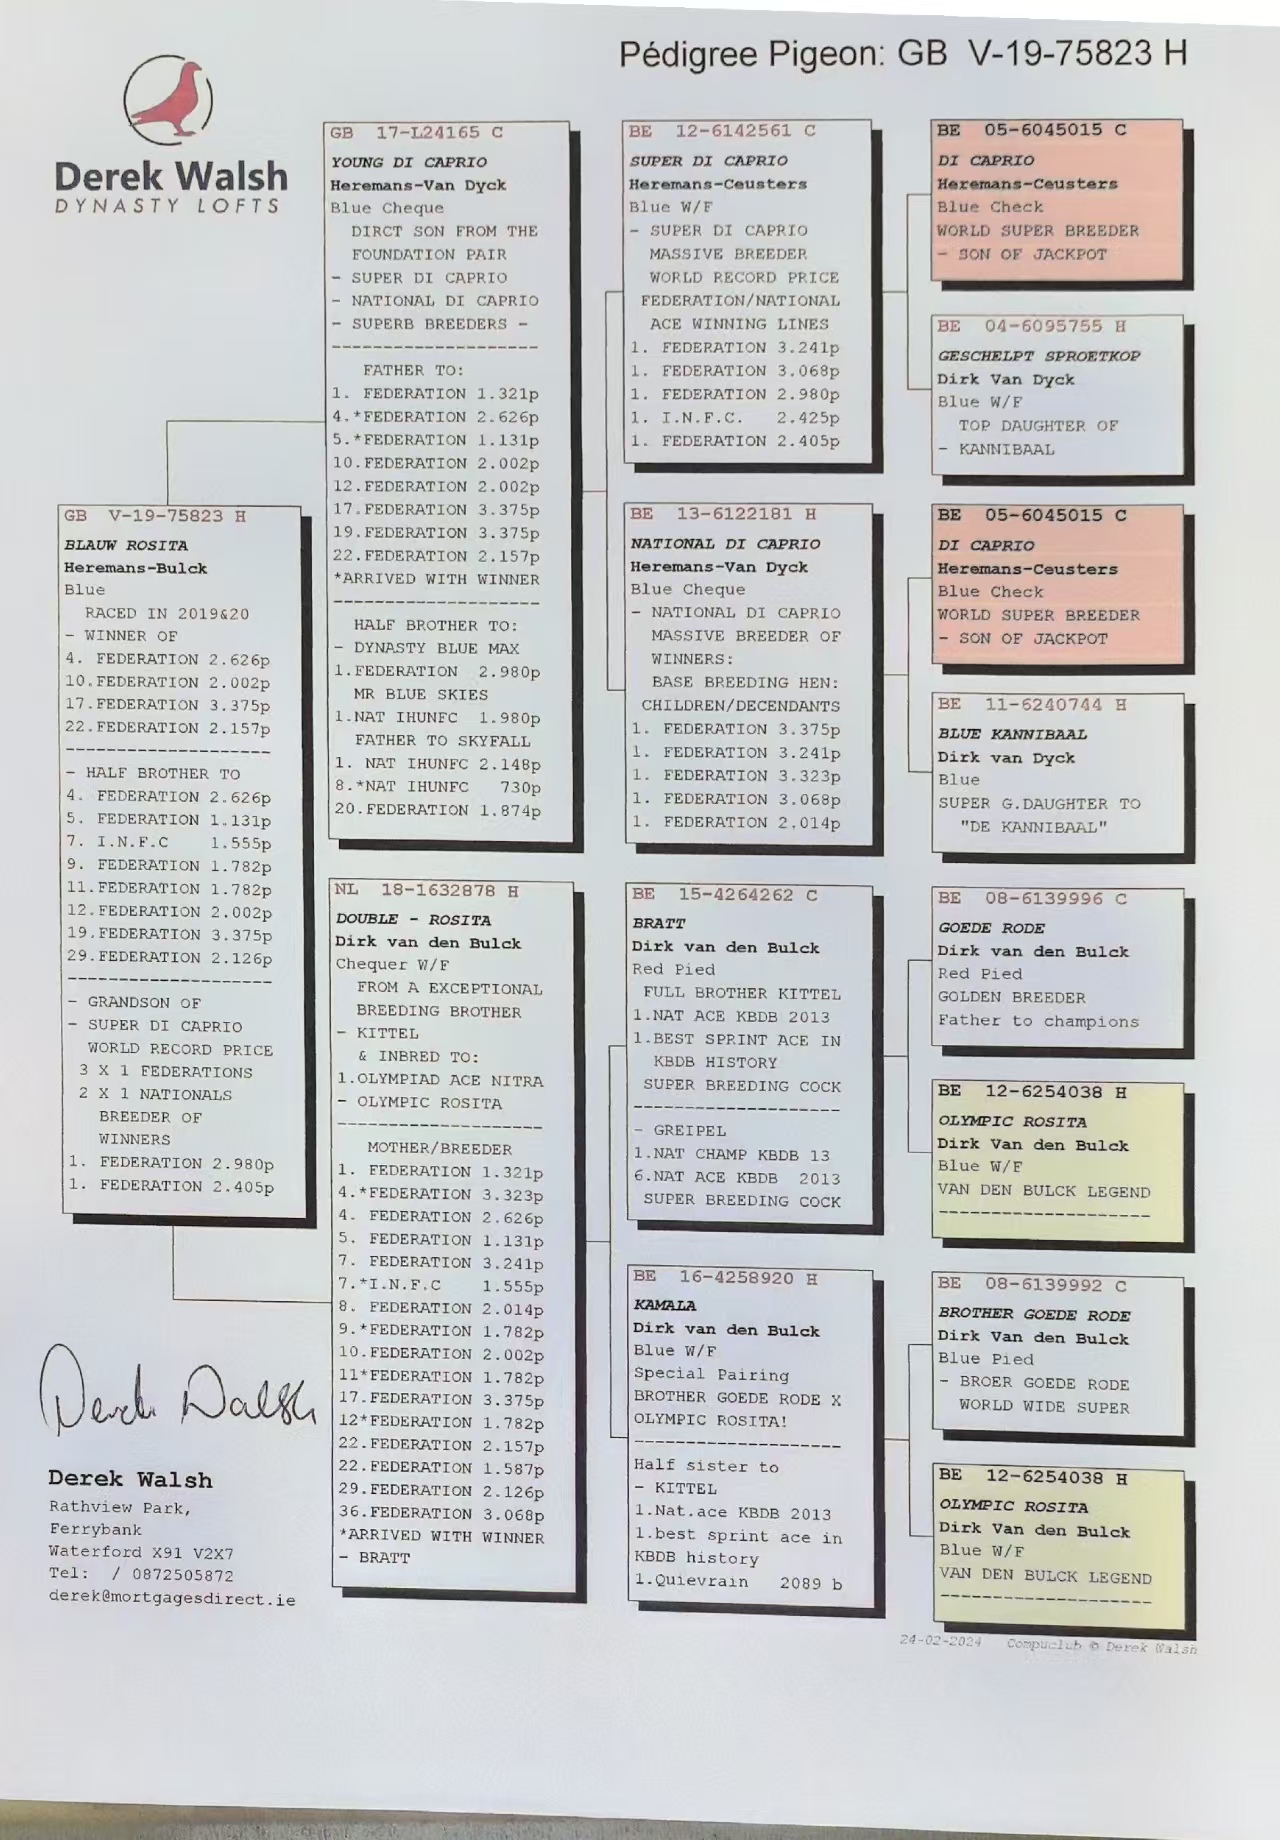 Pédigree Pigeon: GB V-19-75823 H
Derek Walsh
DYNASTY LOFTS
GB V-19-75823 H
BLAUW ROSITA
Heremans-Bulck
Blue
RACED IN 2019&20
- WINNER OF
4. FEDERATION 2.626p
10.FEDERATION 2.002p
17.FEDERATION 3.375p
22.FEDERATION 2.157p
--------------------
- HALF BROTHER TO
4. FEDERATION 2.626p
5. FEDERATION 1.131p
7. I.N.F.C 1.555p
9. FEDERATION 1.782p
11.FEDERATION 1.782p
12.FEDERATION 2.002p
19.FEDERATION 3.375p
29.FEDERATION 2.126p
--------------------
- GRANDSON OF
- SUPER DI CAPRIO
WORLD RECORD PRICE
3 X 1 FEDERATIONS
2 X 1 NATIONALS
BREEDER OF
WINNERS
1. FEDERATION 2.980p
1. FEDERATION 2.405p
GB 17-L24165 C
YOUNG DI CAPRIO
Heremans-Van Dyck
Blue Cheque
DIRCT SON FROM THE
FOUNDATION PAIR
- SUPER DI CAPRIO
- NATIONAL DI CAPRIO
- SUPERB BREEDERS -
--------------------
FATHER TO:
1. FEDERATION 1.321p
4.*FEDERATION 2.626p
5.*FEDERATION 1.131p
10.FEDERATION 2.002p
12.FEDERATION 2.002p
17.FEDERATION 3.375p
19.FEDERATION 3.375p
22.FEDERATION 2.157p
*ARRIVED WITH WINNER
--------------------
HALF BROTHER TO:
- DYNASTY BLUE MAX
1.FEDERATION 2.980p
MR BLUE SKIES
1.NAT IHUNFC 1.980p
FATHER TO SKYFALL
1. NAT IHUNFC 2.148p
8.*NAT IHUNFC 730p
20.FEDERATION 1.874p
NL 18-1632878 H
DOUBLE - ROSITA
Dirk van den Bulck
Chequer W/F
FROM A EXCEPTIONAL
BREEDING BROTHER
- KITTEL
& INBRED TO:
1.OLYMPIAD ACE NITRA
- OLYMPIC ROSITA
--------------------
MOTHER/BREEDER
1. FEDERATION 1.321p
4.*FEDERATION 3.323p
4. FEDERATION 2.626p
5. FEDERATION 1.131p
7. FEDERATION 3.241p
7.*I.N.F.C 1.555p
8. FEDERATION 2.014p
9.*FEDERATION 1.782p
10.FEDERATION 2.002p
11*FEDERATION 1.782p
17.FEDERATION 3.375p
12*FEDERATION 1.782p
22.FEDERATION 2.157p
22.FEDERATION 1.587p
29.FEDERATION 2.126p
36.FEDERATION 3.068p
*ARRIVED WITH WINNER
- BRATT
BE 12-6142561 C
SUPER DI CAPRIO
Heremans-Ceusters
Blue W/F
- SUPER DI CAPRIO
MASSIVE BREEDER
WORLD RECORD PRICE
FEDERATION/NATIONAL
ACE WINNING LINES
1. FEDERATION 3.241p
1. FEDERATION 3.068p
1. FEDERATION 2.980p
1. I.N.F.C. 2.425p
1. FEDERATION 2.405p
BE 13-6122181 H
NATIONAL DI CAPRIO
Heremans-Van Dyck
Blue Cheque
- NATIONAL DI CAPRIO
MASSIVE BREEDER OF
WINNERS:
BASE BREEDING HEN:
CHILDREN/DECENDANTS
1. FEDERATION 3.375p
1. FEDERATION 3.241p
1. FEDERATION 3.323p
1. FEDERATION 3.068p
1. FEDERATION 2.014p
BE 15-4264262 C
BRATT
Dirk van den Bulck
Red Pied
FULL BROTHER KITTEL
1.NAT ACE KBDB 2013
1.BEST SPRINT ACE IN
KBDB HISTORY
SUPER BREEDING COCK
--------------------
- GREIPEL
1.NAT CHAMP KBDB 13
6.NAT ACE KBDB 2013
SUPER BREEDING COCK
BE 16-4258920 H
KAMALA
Dirk van den Bulck
Blue W/F
Special Pairing
BROTHER GOEDE RODE X
OLYMPIC ROSITA!
--------------------
Half sister to
- KITTEL
1.Nat.ace KBDB 2013
1.best sprint ace in
KBDB history
1.Quievrain 2089 b
BE 05-6045015 C
DI CAPRIO
Heremans-Ceusters
Blue Check
WORLD SUPER BREEDER
- SON OF JACKPOT
BE 04-6095755 H
GESCHELPT SPROETKOP
Dirk Van Dyck
Blue W/F
TOP DAUGHTER OF
- KANNIBAAL
BE 05-6045015 C
DI CAPRIO
Heremans-Ceusters
Blue Check
WORLD SUPER BREEDER
- SON OF JACKPOT
BE 11-6240744 H
BLUE KANNIBAAL
Dirk van Dyck
Blue
SUPER G.DAUGHTER TO
"DE KANNIBAAL"
BE 08-6139996 C
GOEDE RODE
Dirk van den Bulck
Red Pied
GOLDEN BREEDER
Father to champions
BE 12-6254038 H
OLYMPIC ROSITA
Dirk Van den Bulck
Blue W/F
VAN DEN BULCK LEGEND
--------------------
BE 08-6139992 C
BROTHER GOEDE RODE
Dirk Van den Bulck
Blue Pied
- BROER GOEDE RODE
WORLD WIDE SUPER
BE 12-6254038 H
OLYMPIC ROSITA
Dirk Van den Bulck
Blue W/F
VAN DEN BULCK LEGEND
--------------------
Derek Walsh
Derek Walsh
Rathview Park,
Ferrybank
Waterford X91 V2X7
Tel: / 0872505872
derek@mortgagesdirect.ie
24-02-2024 Compuclub © Derek Walsh